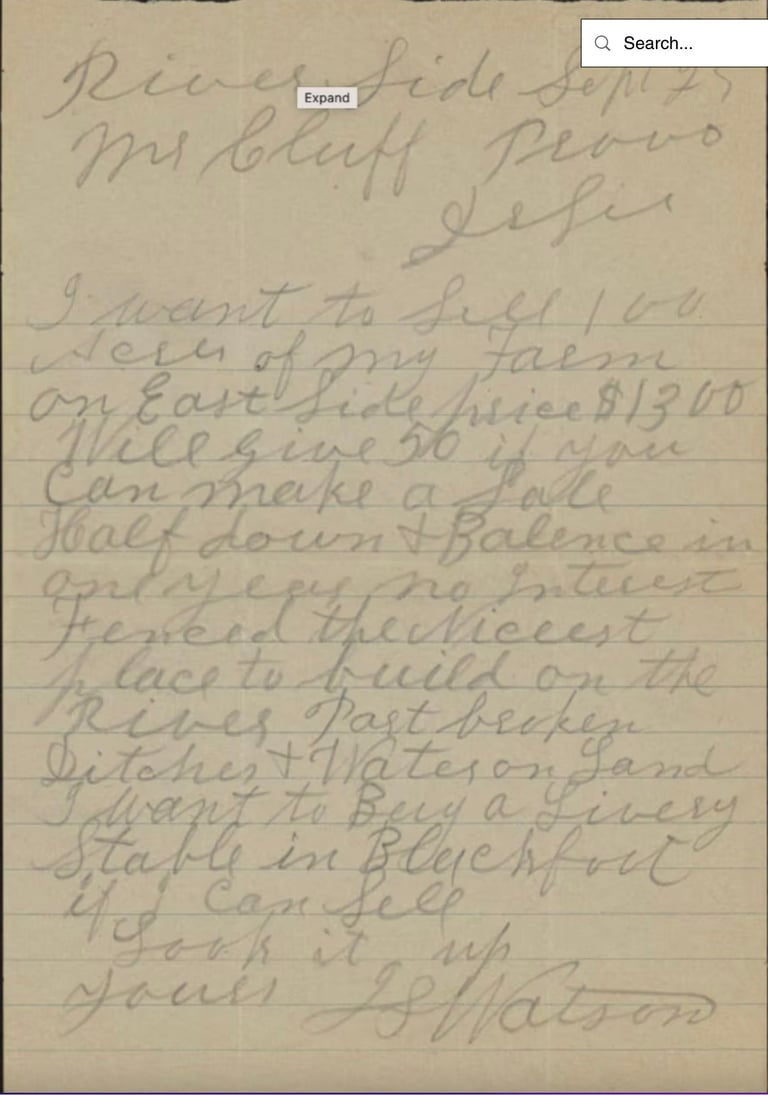 Search...
River Side Sept 25
Expand
Mr Cluff Provo
Dr Sir
I want to Sell 100
Acres of my Farm
on East Side price $1300
Will give 50 if you
Can make a Sale
Half down & Balence in
one year no Interest
Fenced the Niceest
place to build on the
River Part broken
Ditches & Water on Land
I want to Buy a Livery
Stable in Blackfoot
if I Can Sell
Look it up
Yours JS Watson